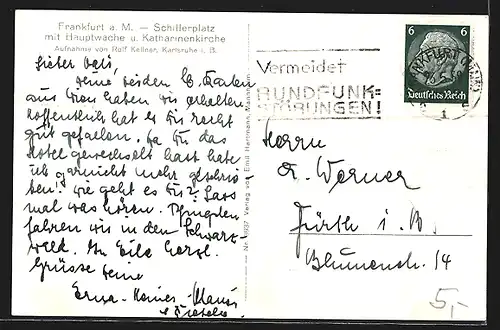 Frankfurt a. M. — Schillerplatz
mit Hauptwache u. Katharinenkirche
Aufnahme von Rolf Kellner, Karlsruhe i. B.
Lieber
deine beiden lb. Karten
aus Wien haben wir erhalten
Hoffentlich hat es dir recht
gut gefallen. Da du das
Hotel gewechselt hast habe
ich garnicht mehr geschrie-
ben. Wie geht es dir? Lass
mal was hören. Pfingsten
fahren wir in den Schwarz-
wald. In Eile herzl.
Grüsse deine
Erna-
Nr. Verlag von Emil Hartmann, Mannheim
Vermeidet
RUNDFUNK=
STÖRUNGEN!
FRANKFURT
6 6
Deutsches Reich
Herrn
Werner
Fürth i. B.
Blumenstr. 14
5,-